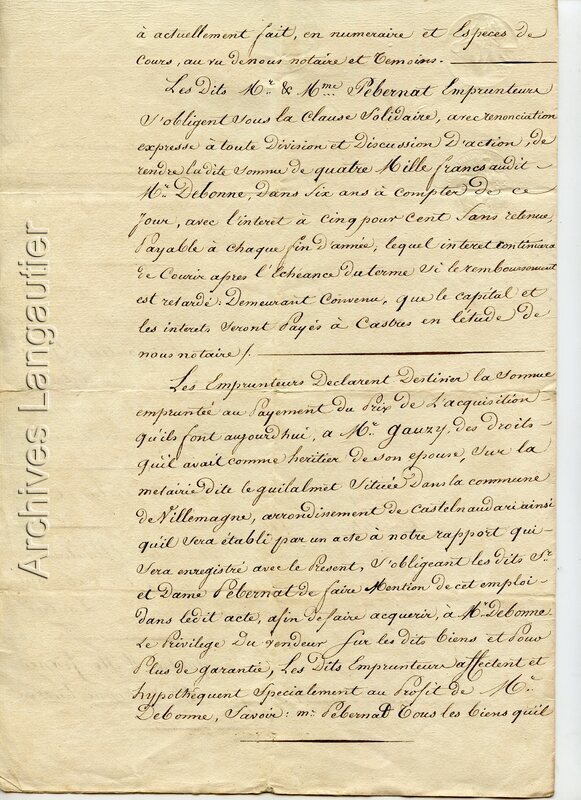 à actuellement fait, en numeraire et Especes de
Cours, au vu de nous notaire et Temoins.
Les Dits Mr. & Mme. Pebernat Emprunteurs
s'obligent sous la Clause Solidaire, avec renonciation
expresse à toute Division et Discussion D'action, de
rendre la dite somme de quatre Mille francs audit
Mr. Debonne, Dans Six ans à compter de ce
Jour, avec l'interet à cinq pour cent Sans retenue,
Payable à chaque fin d'année, lequel interet continuera
de Courir après l'Echéance du terme si le remboursement
est retardé: Demeurant Convenu, que le capital et
les interets seront Payés à Castres en l'étude de
nous notaire /.
Les Emprunteurs Declarent Destiner la Somme
empruntée au Payement du Prix de L'acquisition
qu'ils font aujourd'hui, a Mr. Gauzy, des droits
qu'il avait comme heritier de son epouse, sur la
metairie dite le guilalmet Située Dans la commune
de Villemagne, arrondisement de Castelnaudari ainsi
qu'il sera établi par un acte à notre rapport qui
sera enregistré avec le Present, s'obligeant les dits Sr.
et Dame Pebernat de faire Mention de cet emploi
dans ledit acte, afin de faire acquerir, à Mr. Debonne
Le Privilege Du vendeur sur les dits biens et Pour
Plus de garantie, Les Dits Emprunteurs affectent et
hypothequent Specialement au Profit de Mr.
Debonne, Savoir: mr. Pebernat Tous les biens qu'il
Archives Langautier